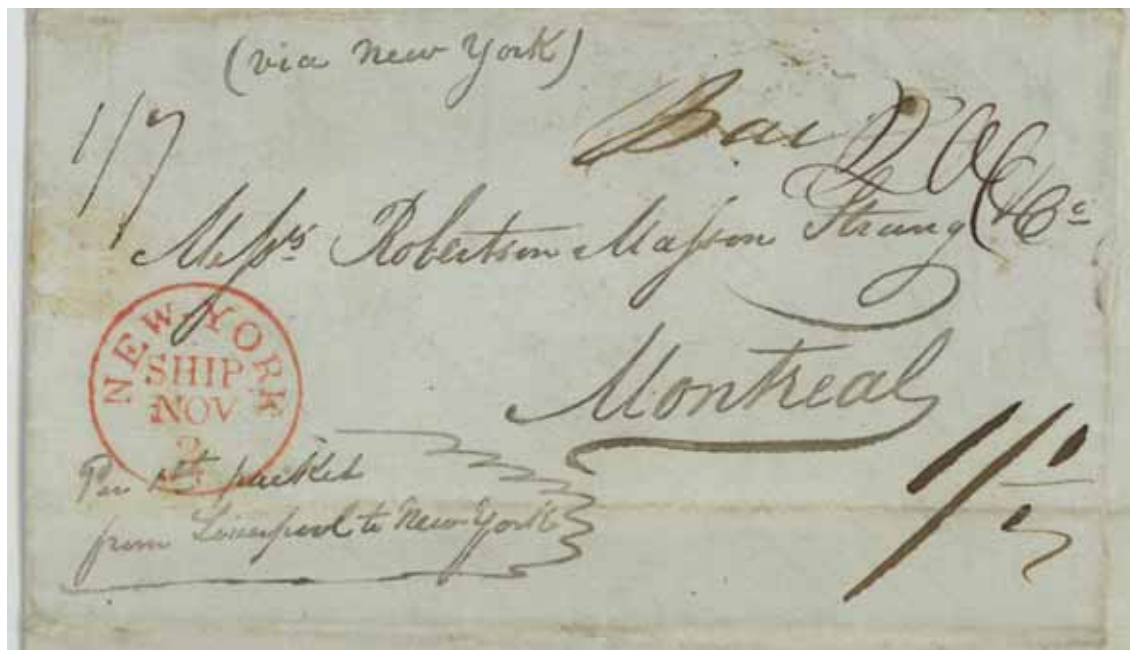 (via New York)
1/7
Messrs Robertson Masson Strang & Co
NEW-YORK
SHIP
NOV
2
Montreal
Per 1st packet
from Liverpool to New York